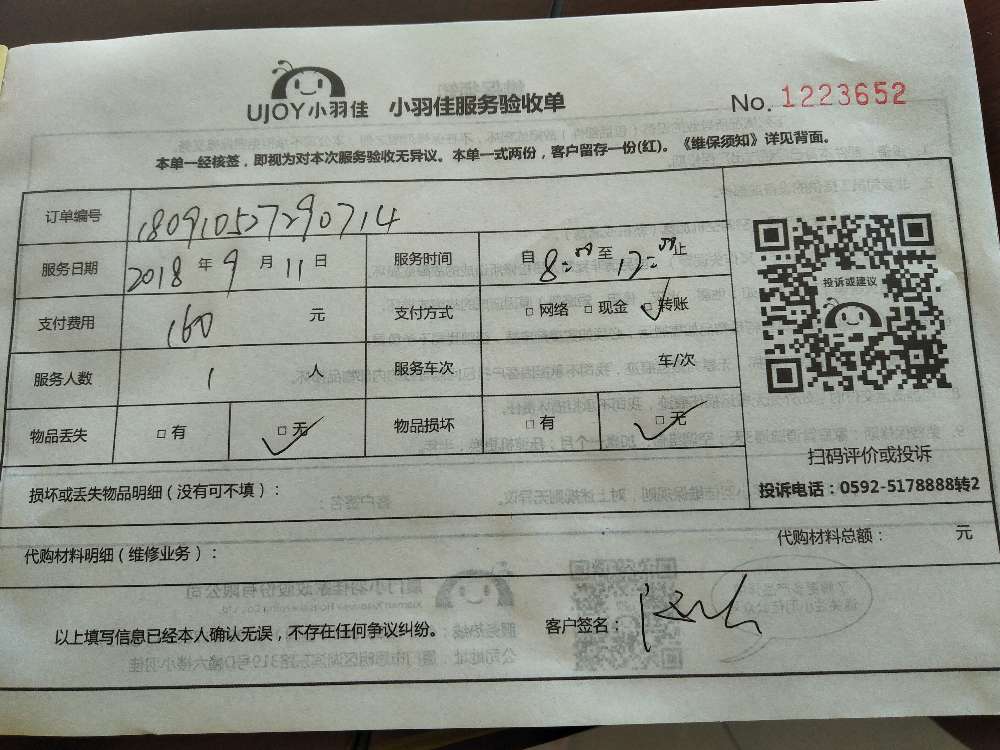 UJOY小羽佳 小羽佳服务验收单 No. 1223652
本单一经核签，即视为对本次服务验收无异议。本单一式两份，客户留存一份(红)。《维保须知》详见背面。
订单编号 18091052729 0714
服务日期 2018 年 9 月 11 日 服务时间 自 8:00 至 12:00 止
支付费用 160 元 支付方式 □ 网络 □ 现金 □ 转账
投诉或建议
服务人数 1 人 服务车次 车/次
物品丢失 □ 有 □ 无 物品损坏 □ 有 □ 无
扫码评价或投诉
损坏或丢失物品明细（没有可不填）：
投诉电话：0592-5178888转2
代购材料明细（维修业务）： 代购材料总额： 元
以上填写信息已经本人确认无误，不存在任何争议纠纷。 客户签名：